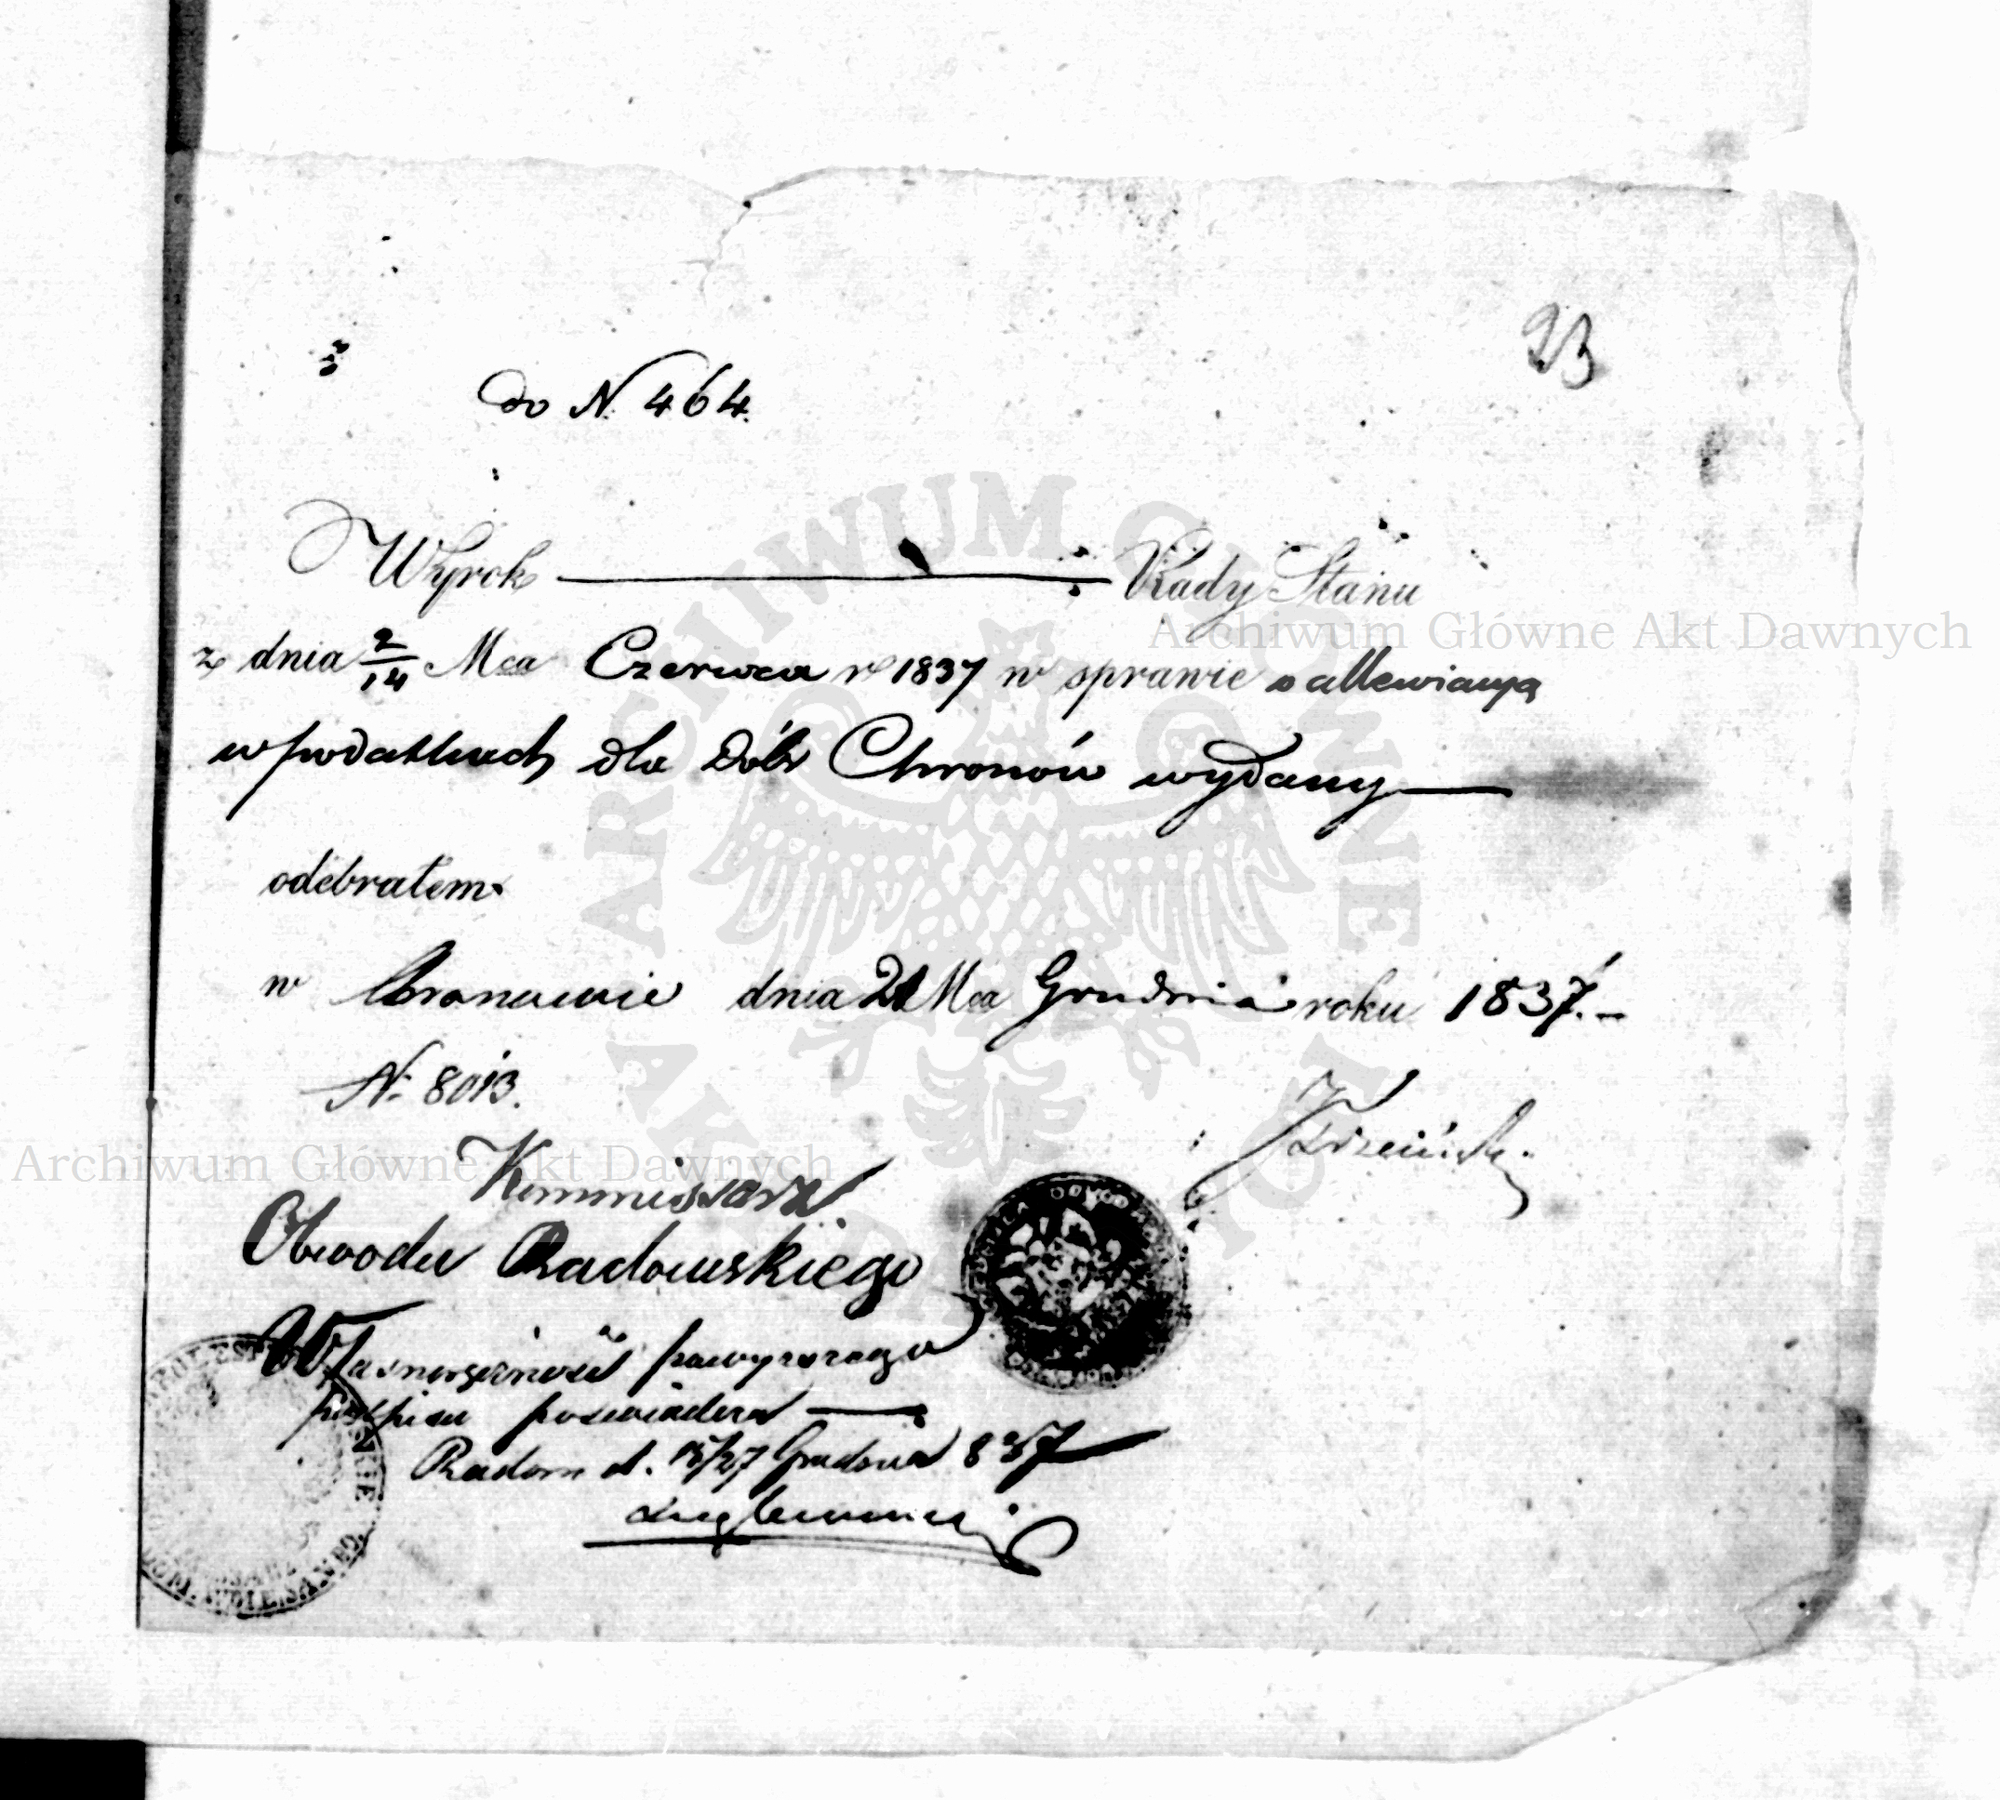 23
do N. 464.
Wyrok Rady Stanu
z dnia 2/14 Mca Czerwca r 1837 w sprawie o allewiacyą
w podatkach dla Dóbr Chronów wydany
odebrałem
w Chronowie dnia 21 Mca Grudnia roku 1837.
N. 8013.
Kommissarz
Obwodu Radomskiego
Własnoręczność powyższego
podpisu poświadcza
Radom d. 15/27 Grudnia 837
Archiwum Główne Akt Dawnych
Archiwum Główne Akt Dawnych
ARCHIWUM GŁÓWNE AKT DAWNYCH